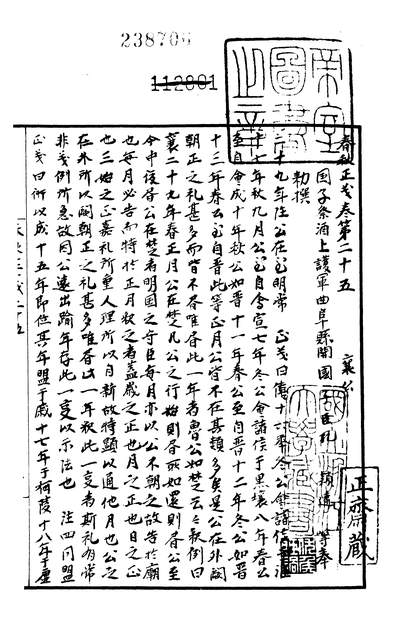 238706
112801
帝室圖書之章
春秋正義卷第二十五　襄公
國子祭酒上護軍曲阜縣開國子臣孔穎達等奉
勅撰
二十九年注公在至明常　正義曰傳十六年冬公會諸侯于淮
十七年秋九月公至自會宣七年冬公會諸侯于黑壤八年春公
至自會成十年秋公如晋十一年春公至自晋十二年冬公如晋
十三年春公至自晋此等正月公皆不在其類多矣是公在外闕
朝正之礼甚多而皆不書唯書此一年者魯公如楚云々釈例曰
襄二十九年春正月公在楚凡公之行始則書所如還則書公至
今中復書公在楚者明國之守臣每月亦以公不朝之故告於廟
也每月必告而特於正月釈之者蓋歲之正也月之正也日之正
也三始之正嘉礼所重人理所以自新故特顯以通他月也公之
在外所以闕朝正之礼甚多唯書此一年釈此一変者斯礼有常
非義例所急故因公遠出踰年存此一変以示法也　注四同盟
正義曰衎以成十五年即位其年盟于戚十七年于柯陵十八年于虚
正齋藏